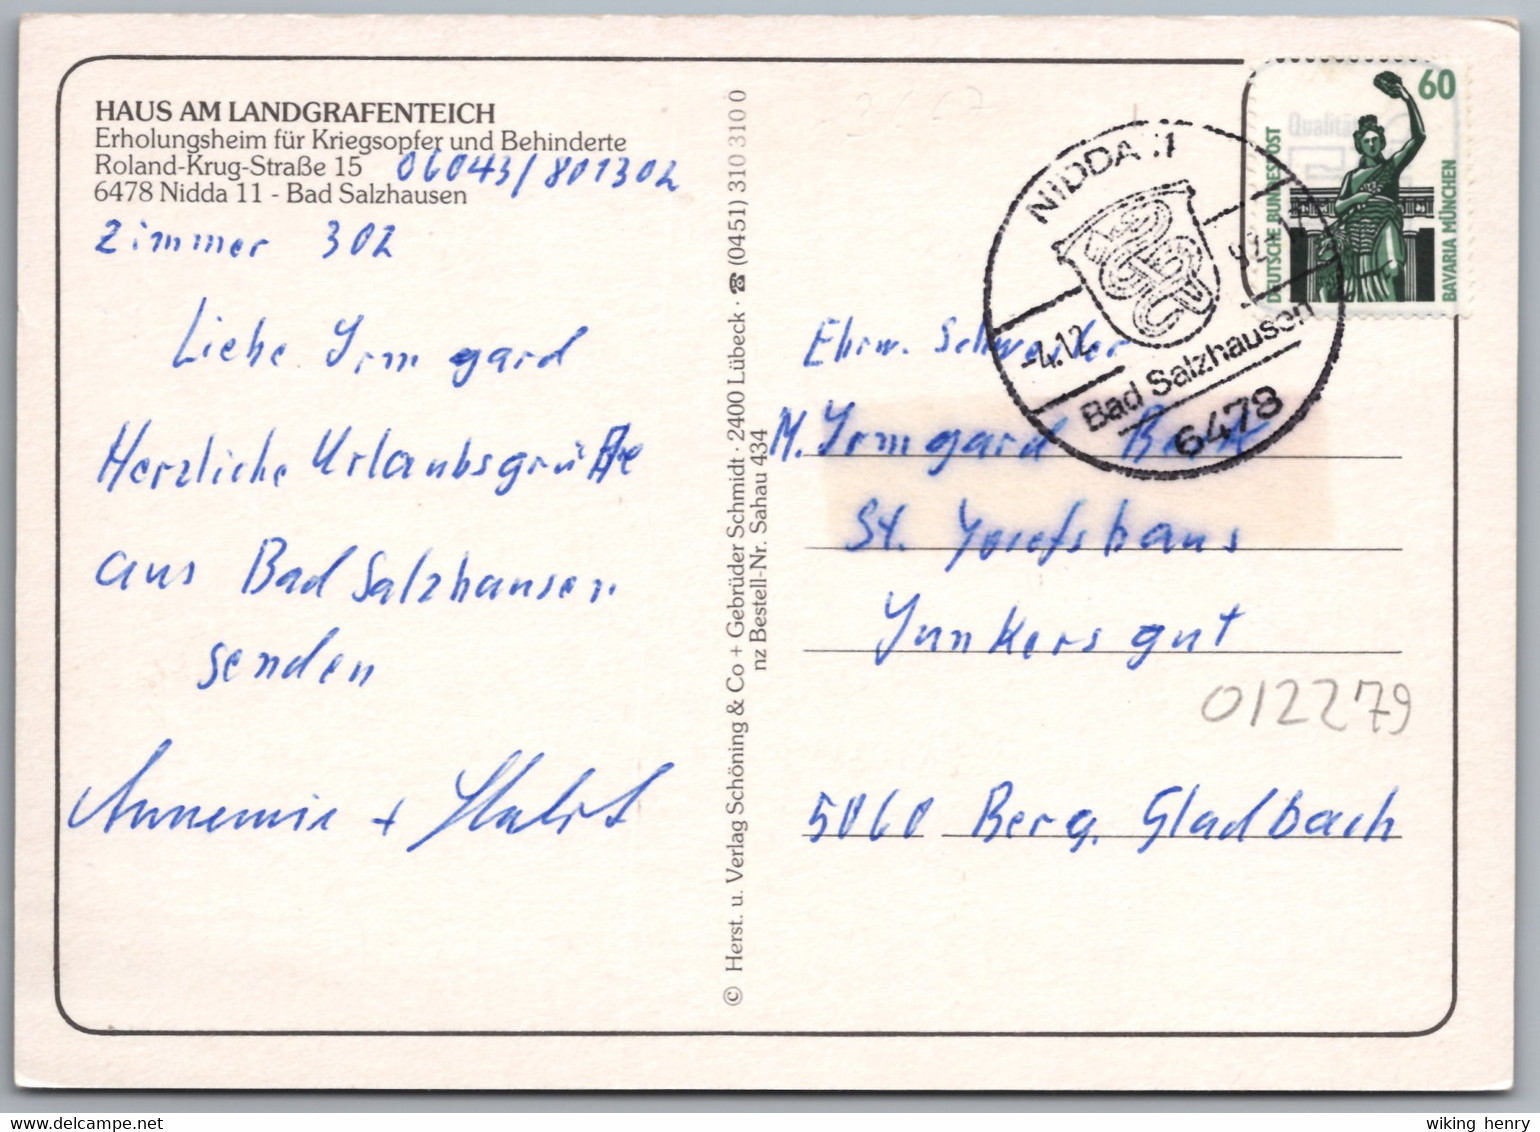 HAUS AM LANDGRAFENTEICH
Erholungsheim für Kriegsopfer und Behinderte
Roland-Krug-Straße 15 06043/801302
6478 Nidda 11 - Bad Salzhausen
Zimmer 302
Liebe Irmgard
Herzliche Urlaubsgrüße
aus Bad Salzhausen
senden
Annemie +
© Herst. u. Verlag Schöning & Co + Gebrüder Schmidt · 2400 Lübeck · ☎ (0451) 310 310 0
nz Bestell-Nr. Sahau 434
NIDDA 11
-4.12.
Bad Salzhausen
6478
60
DEUTSCHE BUNDESPOST
BAVARIA MÜNCHEN
Qualität
Ehrw. Schwester
M. Irmgard
St. Josefshaus
Junkersgut
012279
5060 Berg. Gladbach
delcampe.net
wiking_henry